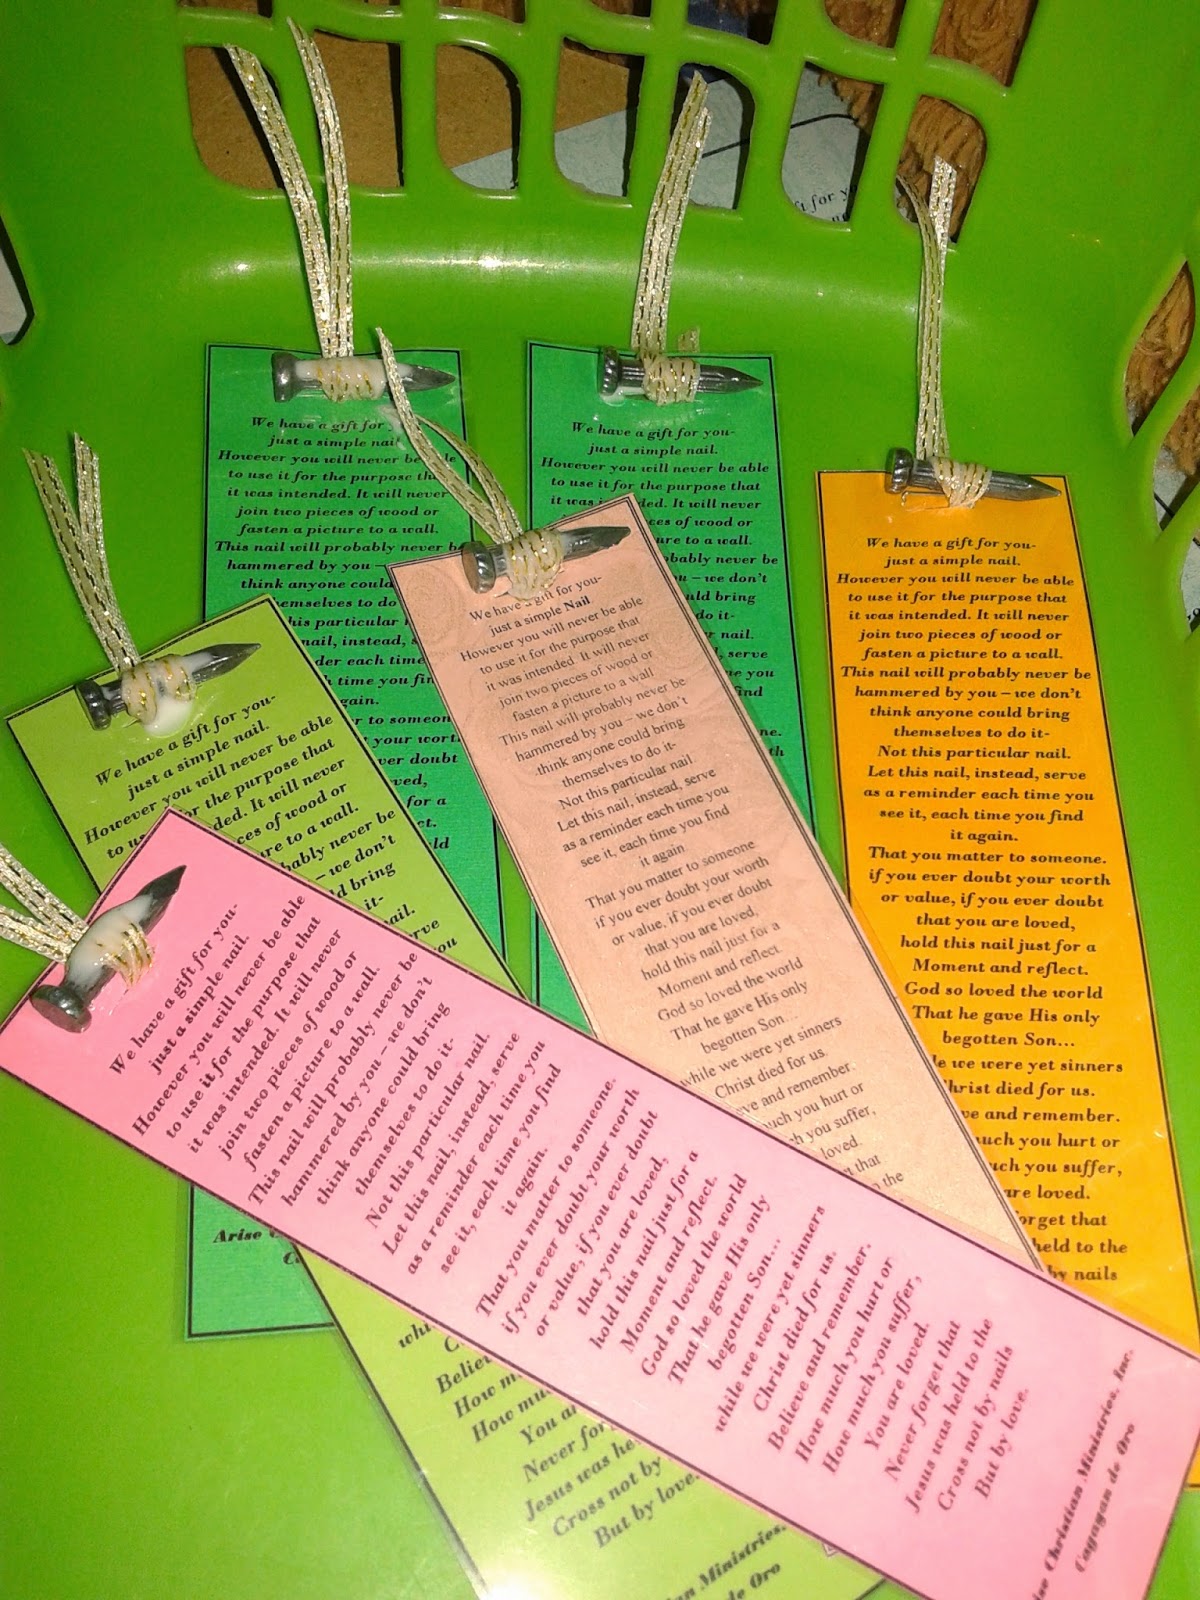 We have a gift for y
just a simple nail
However you will never be able
to use it for the purpose that
it was intended. It will never
join two pieces of wood or
fasten a picture to a wall.
This nail will probably never be
hammered by you —
think anyone could
themselves to do
his particular
nail, instead, s
der each time
you fin
gain.
r to someon
your worth
ver doubt
ved,
for a
ct.
Arise
We have a gift for you-
just a simple nail.
However you will never be able
to use it for the purpose that
it was in
ces of wood or
ure to a wall.
obably never be
u – we don't
ld bring
do it-
r nail.
, serve
me you
find
We have a gift for you-
just a simple nail.
However you will never be able
to use it for the purpose that
it was intended. It will never
join two pieces of wood or
fasten a picture to a wall.
This nail will probably never be
hammered by you – we don't
think anyone could bring
themselves to do it-
Not this particular nail.
Let this nail, instead, serve
as a reminder each time you
see it, each time you find
it again.
That you matter to someone.
if you ever doubt your worth
or value, if you ever doubt
that you are loved,
hold this nail just for a
Moment and reflect.
God so loved the world
That he gave His only
begotten Son...
le we were yet sinners
hrist died for us.
ve and remember.
uch you hurt or
ch you suffer,
are loved.
orget that
held to the
by nails
We have a gift for you-
just a simple nail.
However you will never be able
to use it for the purpose that
it was intended. It will never
join two pieces of wood or
fasten a picture to a wall
This nail will probably never be
hammered by you – we don't
think anyone could bring
themselves to do it-
Not this particular nail
Let this nail, instead, serve
as a reminder each time you
see it, each time you find
it again
That you matter to someone
if you ever doubt your worth
or value, if you ever doubt
that you are loved,
hold this nail just for a
Moment and reflect.
God so loved the world
That he gave His only
begotten Son...
while we were yet sinners
Christ died for us.
ve and remember
uch you hurt or
h you suffer,
loved.
t that
n the
We have a gift for you-
just a simple nail.
However you will never be able
to us for the purpose that
ded. It will never
eces of wood or
re to a wall.
bably never be
– we don't
d bring
it-
nail.
rve
you
whi
Believ
How m
How muc
You ar
Never for
Jesus was he
Cross not by
But by love.
an Ministries.
de Oro
We have a gift for you-
just a simple nail.
However you will never be able
to use it for the purpose that
it was intended. It will never
join two pieces of wood or
fasten a picture to a wall.
This nail will probably never be
hammered by you – we don't
think anyone could bring
themselves to do it-
Not this particular nail.
Let this nail, instead, serve
as a reminder each time you
see it, each time you find
it again.
That you matter to someone.
if you ever doubt your worth
or value, if you ever doubt
that you are loved,
hold this nail just for a
Moment and reflect.
God so loved the world
That he gave His only
begotten Son...
while we were yet sinners
Christ died for us.
Believe and remember.
How much you hurt or
How much you suffer,
You are loved.
Never forget that
Jesus was held to the
Cross not by nails
But by love.
ise Christian Ministries, Inc.
Cagayan de Oro